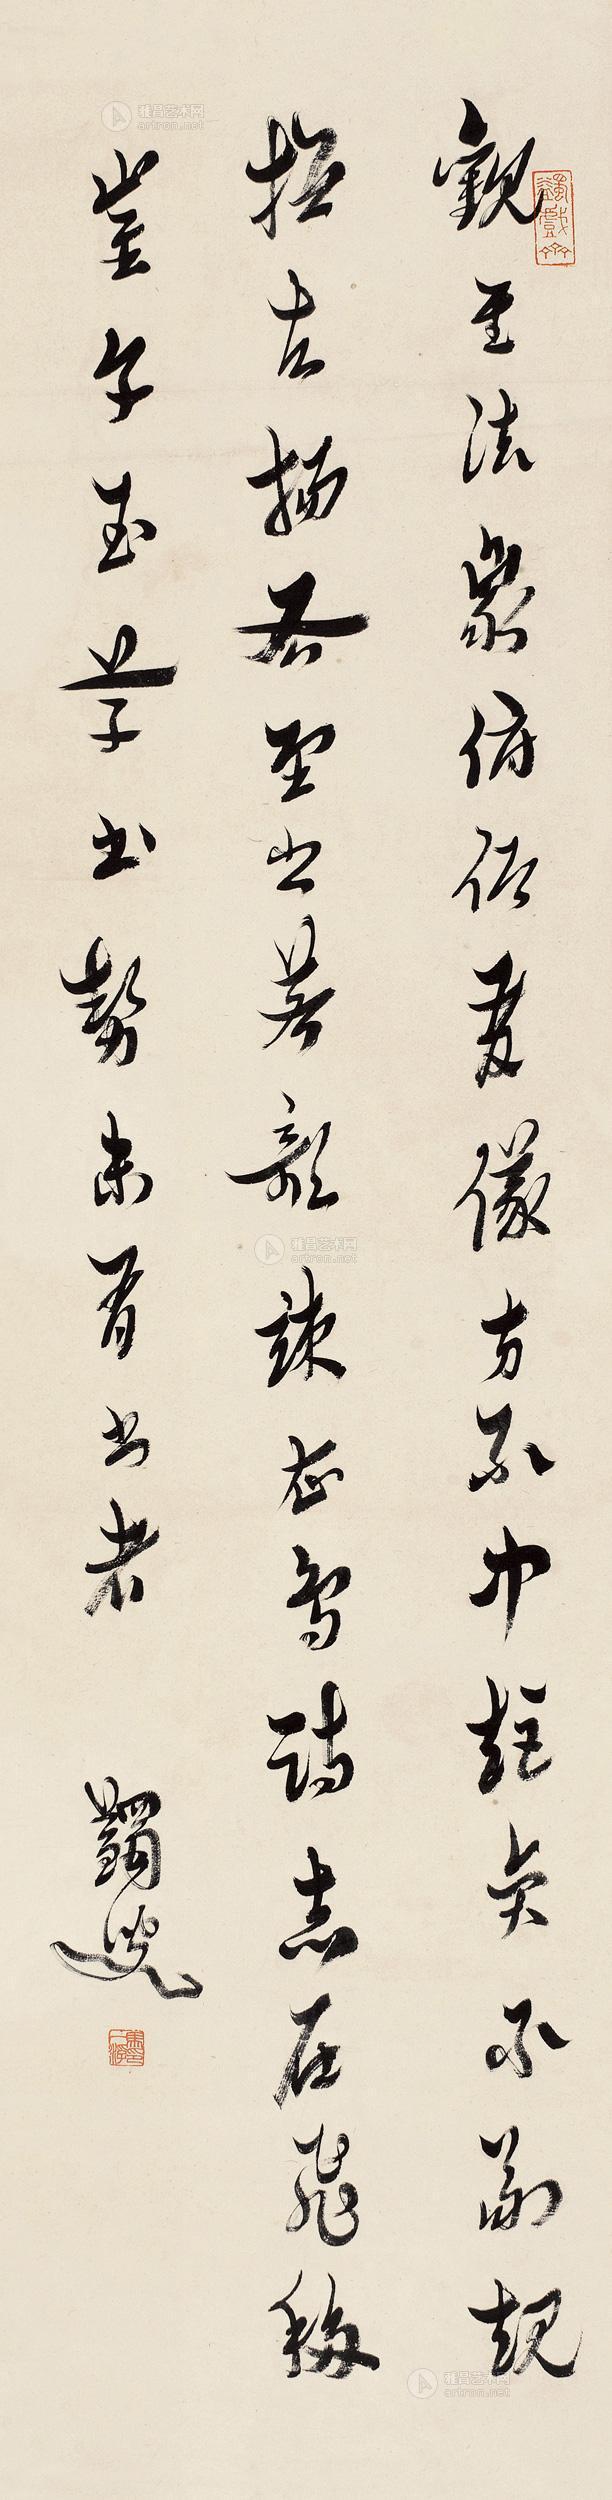 觀其法象俯仰有儀方不中矩員不副規
抑左揚右望之若欹竦企鳥跱志在飛移
崔子玉草書勢 者
蠲叟
蠲戲齋
雅昌艺术网
artron.net
雅昌艺术网
artron.net
雅昌艺术网
artron.net